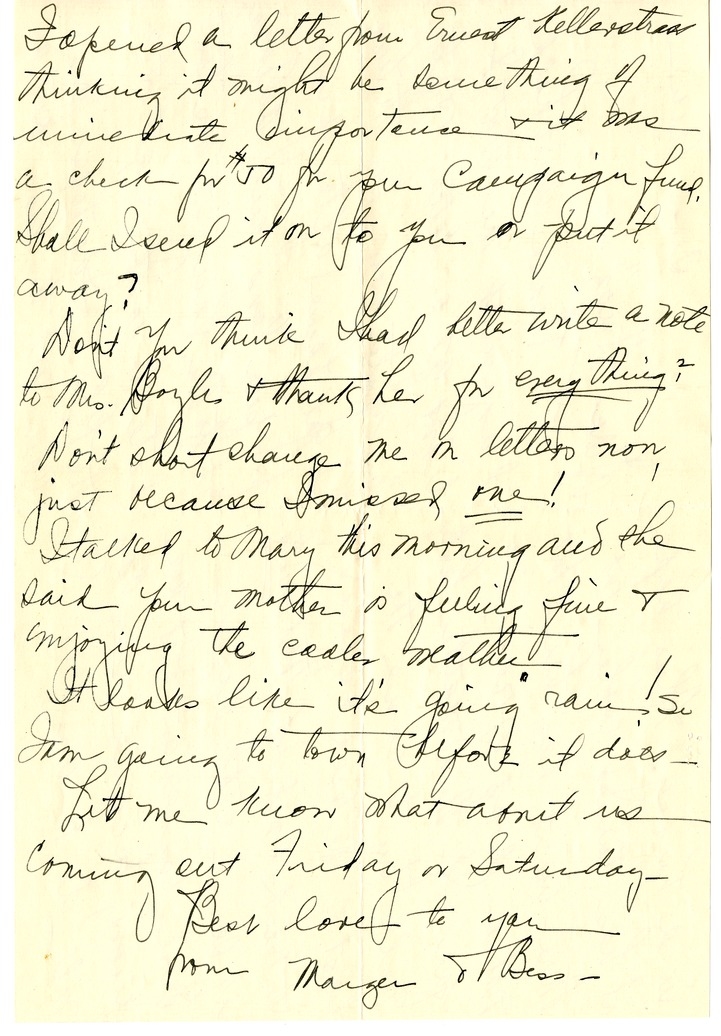 I opened a letter from Ernest Kellerstrass
thinking it might be something of
immediate importance & it was
a check for $50 for your Campaign fund.
Shall I send it on to you or put it
away?
Don't you think I had better write a note
to Mrs. Boyle & thank her for everything?
Don't short change me on letters now,
just because I missed one!
I talked to Mary this morning and she
said your mother is feeling fine &
enjoying the cooler weather.
It looks like it's going " rain! So
I am going to town before it does—
Let me know what about us
coming out Friday or Saturday—
Best love to you
from Marger & Bess—